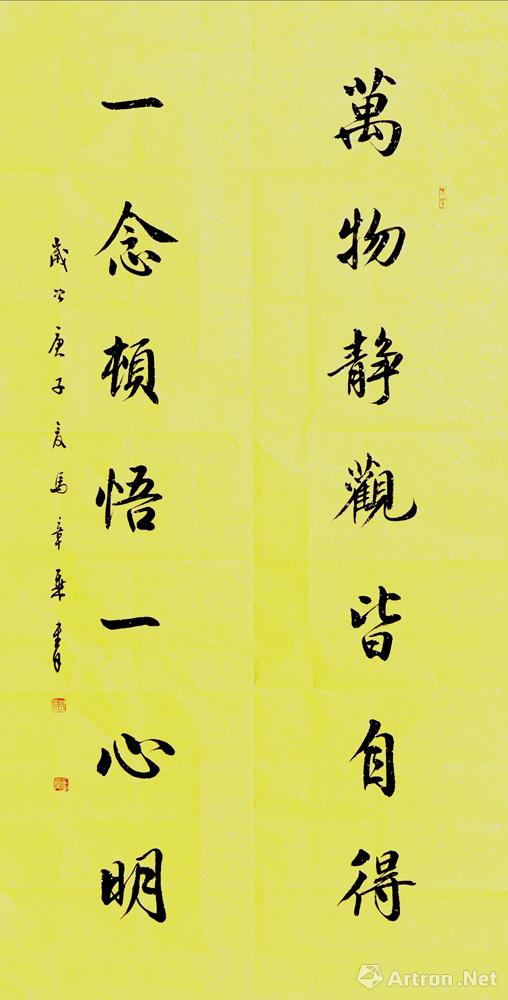 萬物静觀皆自得
一念頓悟一心明
歲次庚子夏馬章乘書
Artron.Net